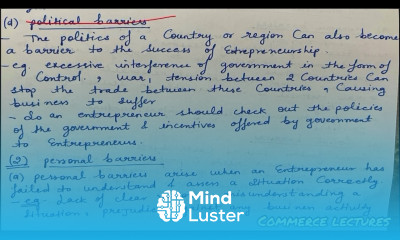 (d) political barriers
- The politics of a Country or region can also become
a barrier to the success of Entrepreneurship.
- eg. excessive interference of government in the form of
Control, war, tension between 2 Countries Can
stop the trade between these Countries, Causing
business to suffer
- So an entrepreneur should check out the policies
of the government & incentives offered by government
to Entrepreneurs.
(2) personal barriers
(a) personal barriers arise when an Entrepreneur has
failed to understand & assess a Situation Correctly.
- eg. Lack of clear understanding a
Situation, any business activity
Mind
Luster
COMMERCE LECTURES